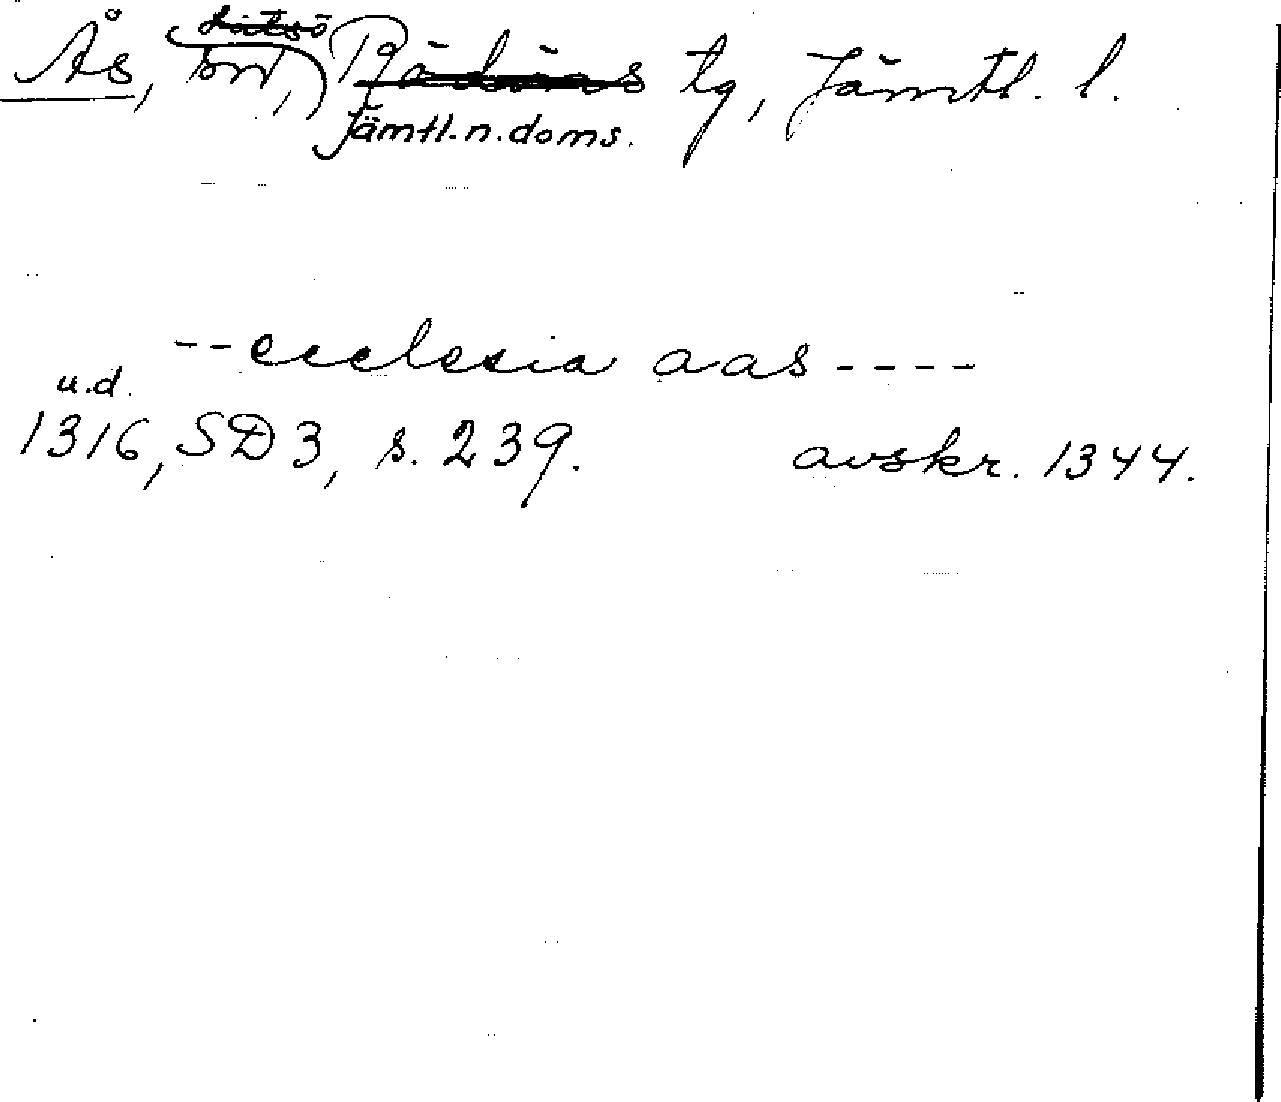 Ås, sn, Rödöns tg, Jämtl. l.
Jämtl. n. doms.
--ecclesia aas----
u.d.
1316, SD 3, s. 239. avskr. 1344.